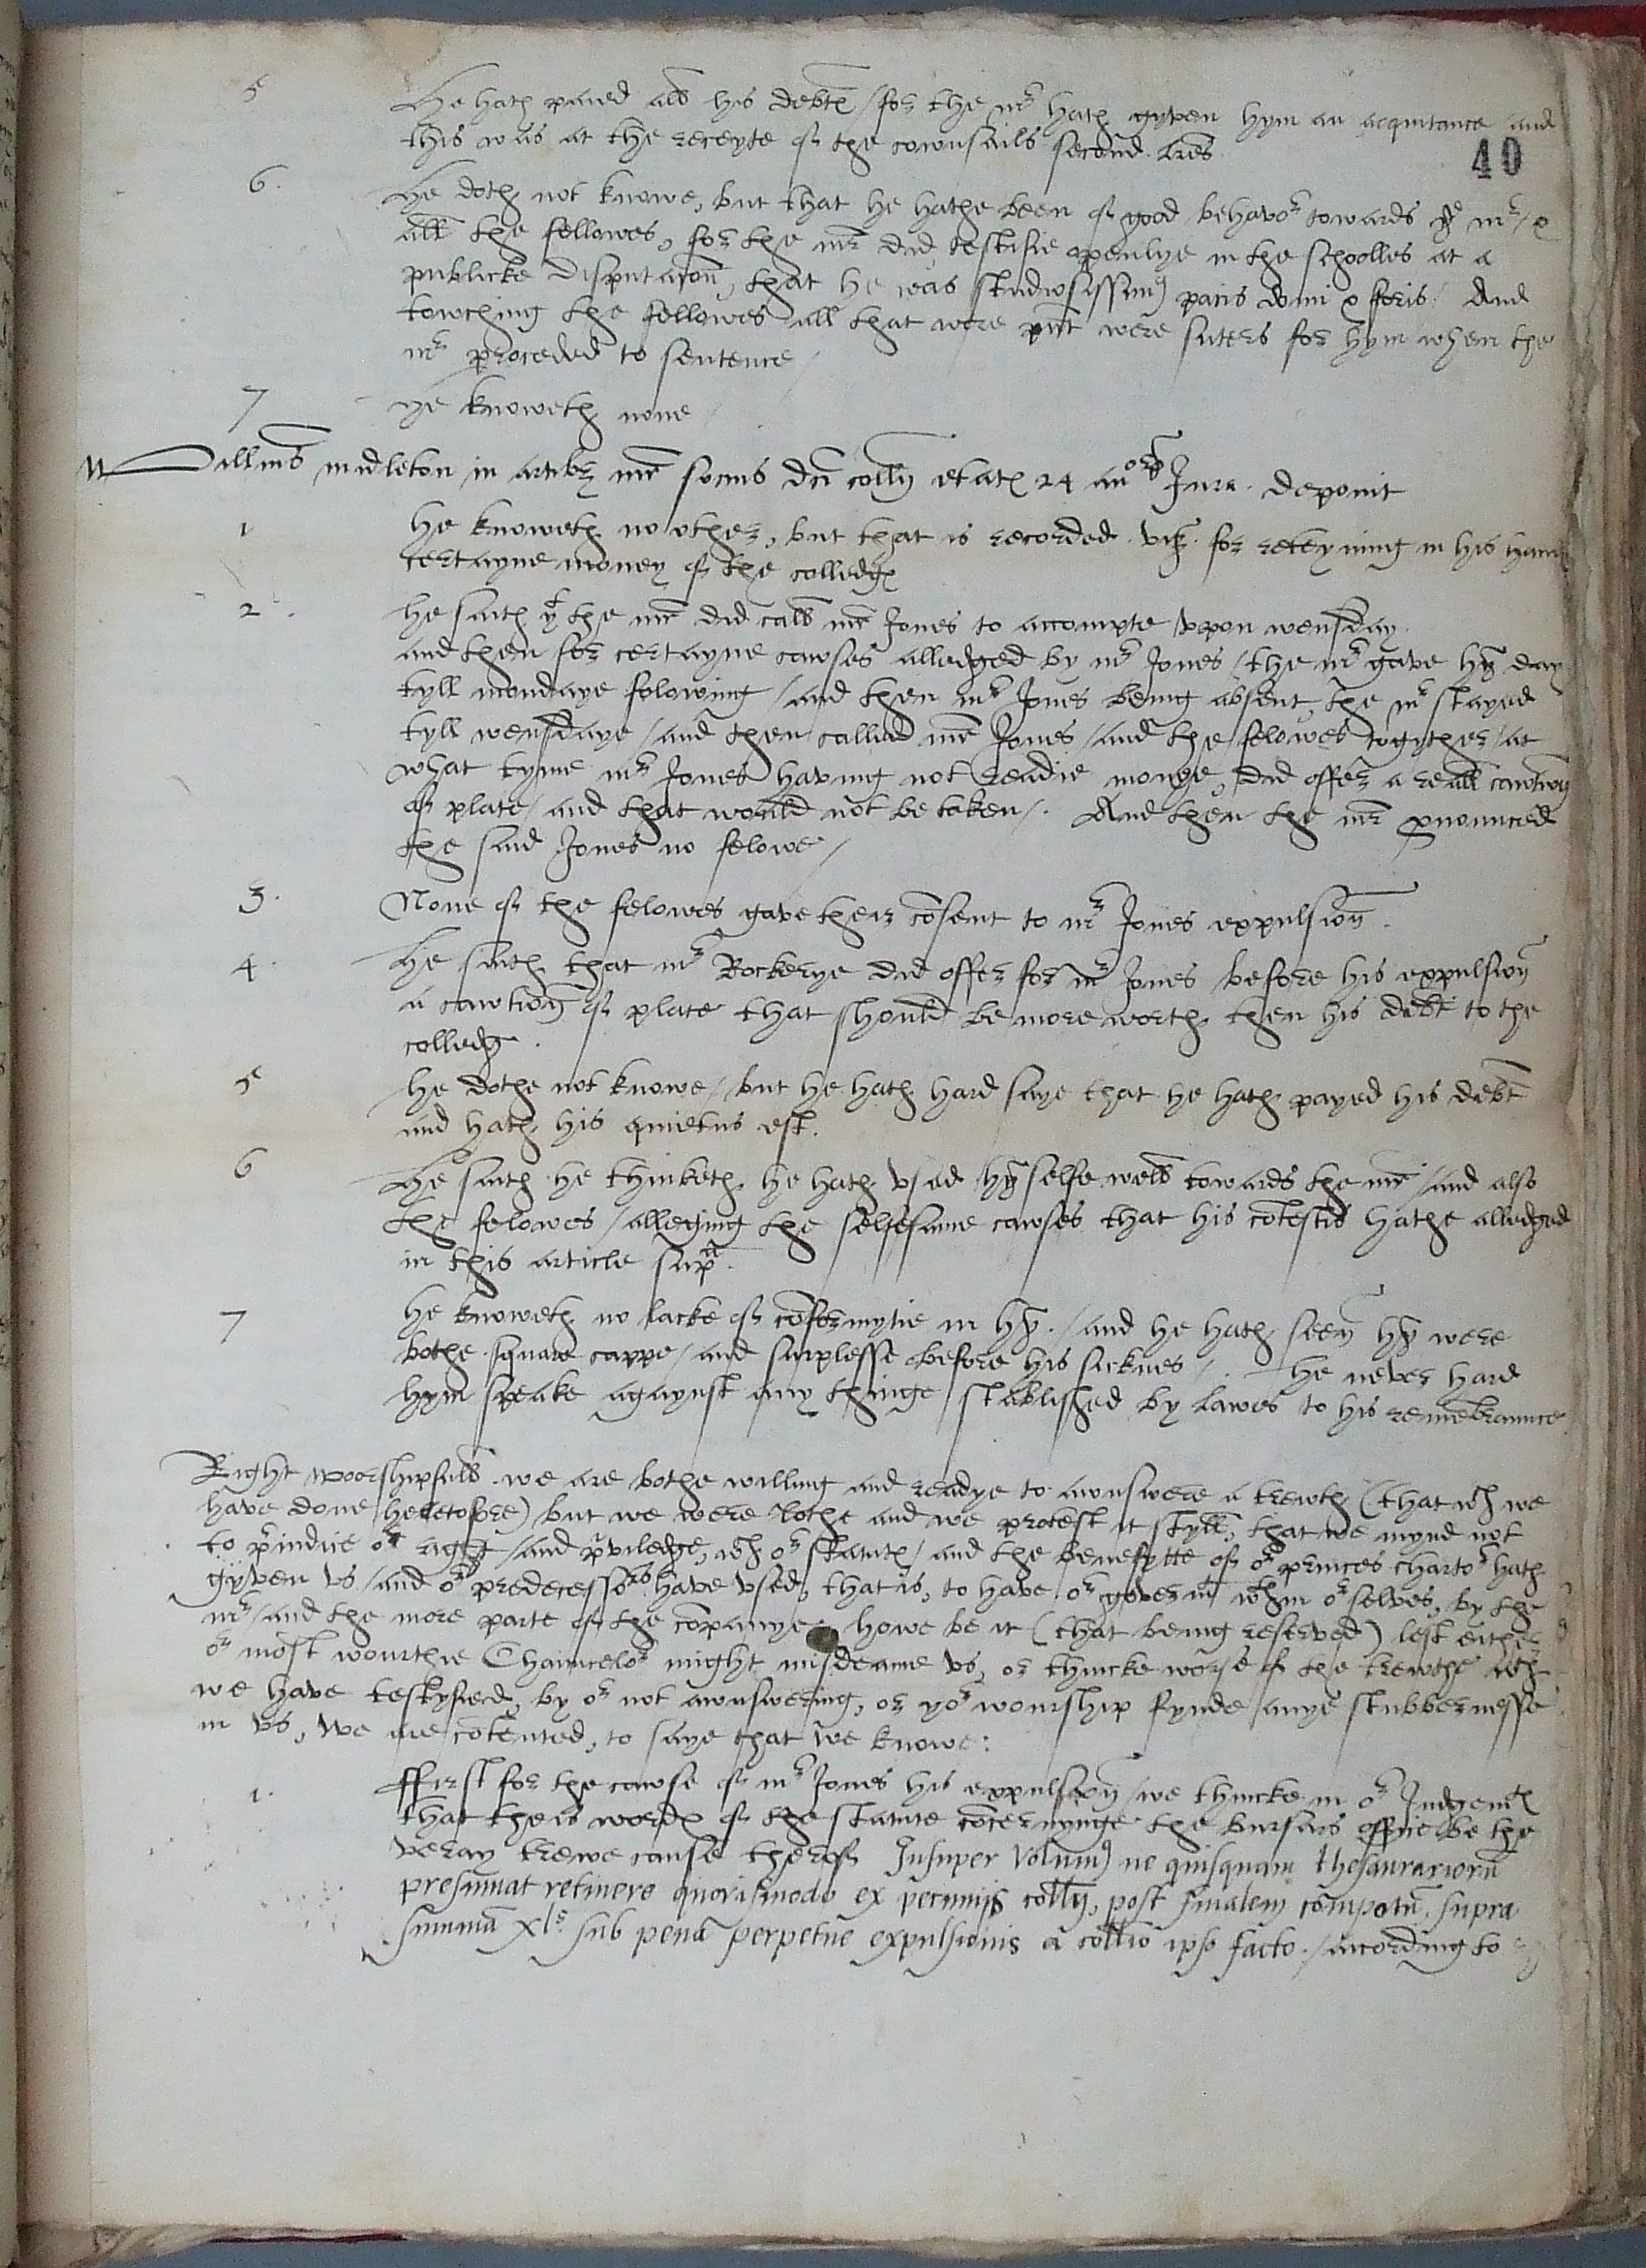 5 He hath paied all his debtes / for the mr hath gyven hym an acquitance / and
this was at the receyte of the counsails second lres
40
6. He doth not knowe, but that he hathe been of good behavor towards ye mr / &
all the fellowes, for the mr did testifie openlye in the schoolles at a
publicke disputacon, that he was studiosissimus pacis domi & foris / And
towching the fellowes all that were pnt were suters for hym when the
mr proceded to sentence /
7 He knoweth none /
Willmus midleton in artibz mr socius dci collij etatis 24 annorum Jura. deponit
1 He knoweth no other, but that is recorded. viz. for reteyning in his hand
certayne money of the colledges
2. He saith yt the mr did call mr Jones to accompte upon wensday
and then for certayne cawses alledged by mr Jones / the mr gave hym day
tyll mondaye folowing / and then mr Jones being absent, the mr stayed
tyll wensdaye / and then called mr Jones / and the felowes togyther / at
what tyme mr Jones having not readie monye, did offer a reall cawtion
of plate / and that would not be taken /. And then the mr pnounced
the said Jones no felowe /
3. None of the felowes gave their cosent to mr Jones expulsion.
4. He saith that mr Rockerye did offer for mr Jones before his expulsion
a cawtion of plate that should be more worth then his debt to the
colledg.
5 He dothe not knowe / but he hath hard saye that he hath payed his debt
and hath his quietus est.
6 He saith he thinketh he hath used hymselfe well towards the mr / and also
the felowes / alleging the selfesame cawses that his cotestis hathe alledged
in this article supra.
7 He knoweth no lacke of coformytie in hym. / and he hath seen hym were
bothe square cappe / and surplesse before his sicknes /. He never hard
hym speake agaynst any thinge stablished by lawes to his remembraunce
Right woorshipfull we are bothe willing and readye to aunswere a trewth (that wch we
have done heretofore) but we were lothe and we protest it styll, that we mynd not
to priudice or right / and privledge, wch or statutes / and the benefytte of or princes chartor hath
gyven us / and or predecessors have used, that is, to have or goverm wthin or selves, by the
mr / and the more parte of the companye. howe be it (that being reserved) lest either
or most wourthie Chauncelor might misdeame us, or thincke worse of the trewthe wch
we have testyfied, by or not aunswering, or yor wourship fynde anye stubbernesse
in us, We are cotented, to saye that we knowe:
1. ffirst for the cawse of mr Jones his expulsion / we thincke in or Judgemtes
that theis wordes of the statute cocernynge the bursars office be the
veray trewe cause therof Insuper volumus ne quisquam thesaurariorum
presumat retinere quovismodo ex pecuniis collij, post finalem compotum, supra
summa xls sub pena perpetue expulsionis a collio ipso facto. / according to